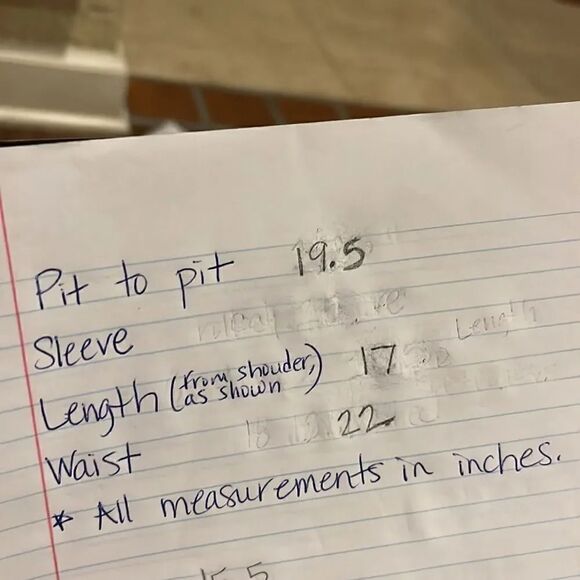 Pit to pit 19.5
Sleeve
Length
Length (from shouder, as shown) 17
Waist 22
* All measurements in inches.